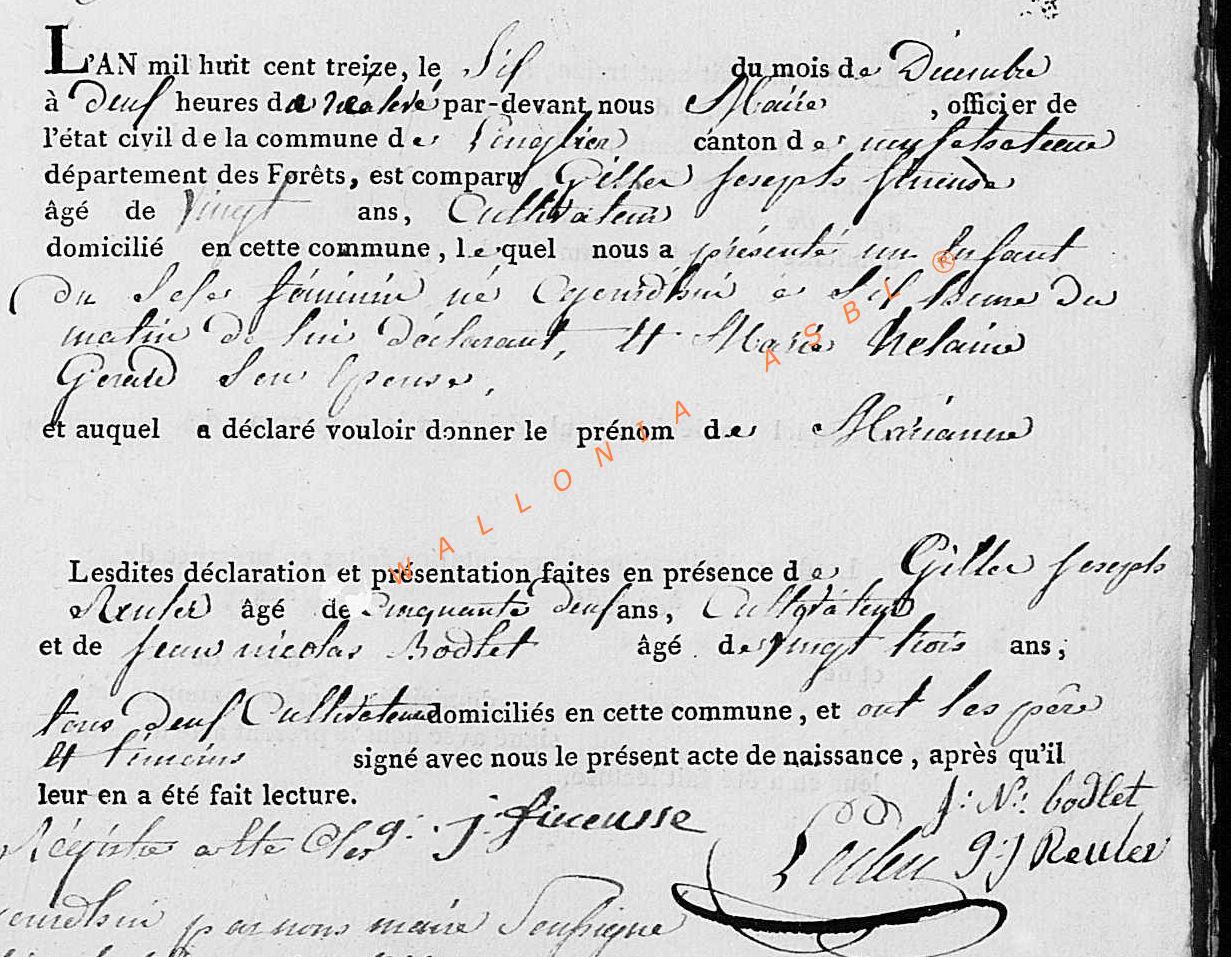 L'AN mil huit cent treize, le Sif du mois de Décembre
à deuf heures de relevé par-devant nous Maire , officier de
l'état civil de la commune de Longlier canton de neufchateau
département des Forêts, est comparu Gilles Joseph fineuse
âgé de Vingt ans, Cultivateur
domicilié en cette commune, lequel nous a présenté un Enfant
du Sefe féminin né à Sif heure du
matin de lui déclarant, et Marie helaine
Gerard Son Epouse,
et auquel a déclaré vouloir donner le prénom de Marianne
Lesdites déclaration et présentation faites en présence de Gilles Joseph
Reuler âgé de Cinquante deuf ans, Cultivateur
et de Jean nicolas Bodlet âgé de vingt trois ans;
tous deuf Cultivateur domiciliés en cette commune, et ont les père
et témoins signé avec nous le présent acte de naissance, après qu'il
leur en a été fait lecture.
g: j: fineusse J: N: bodlet
g: J Reuler
Régistre Clos
par nous maire Soussigne
WALLONIA ASBL ®